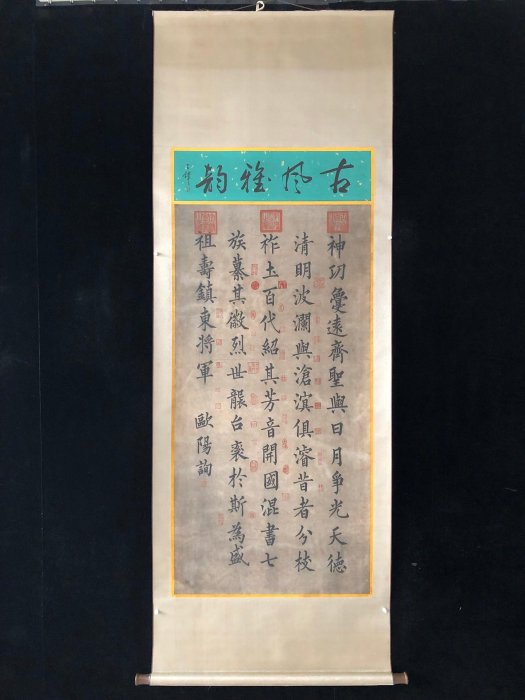 古风雅韵
神功敻遠齊聖與日月爭光天德
清明波瀾與滄溟俱濬昔者分枝
祚土百代紹其芳音開國混書七
族纂其徽烈世襲台衮於斯為盛
祖壽鎮東将軍 歐陽詢